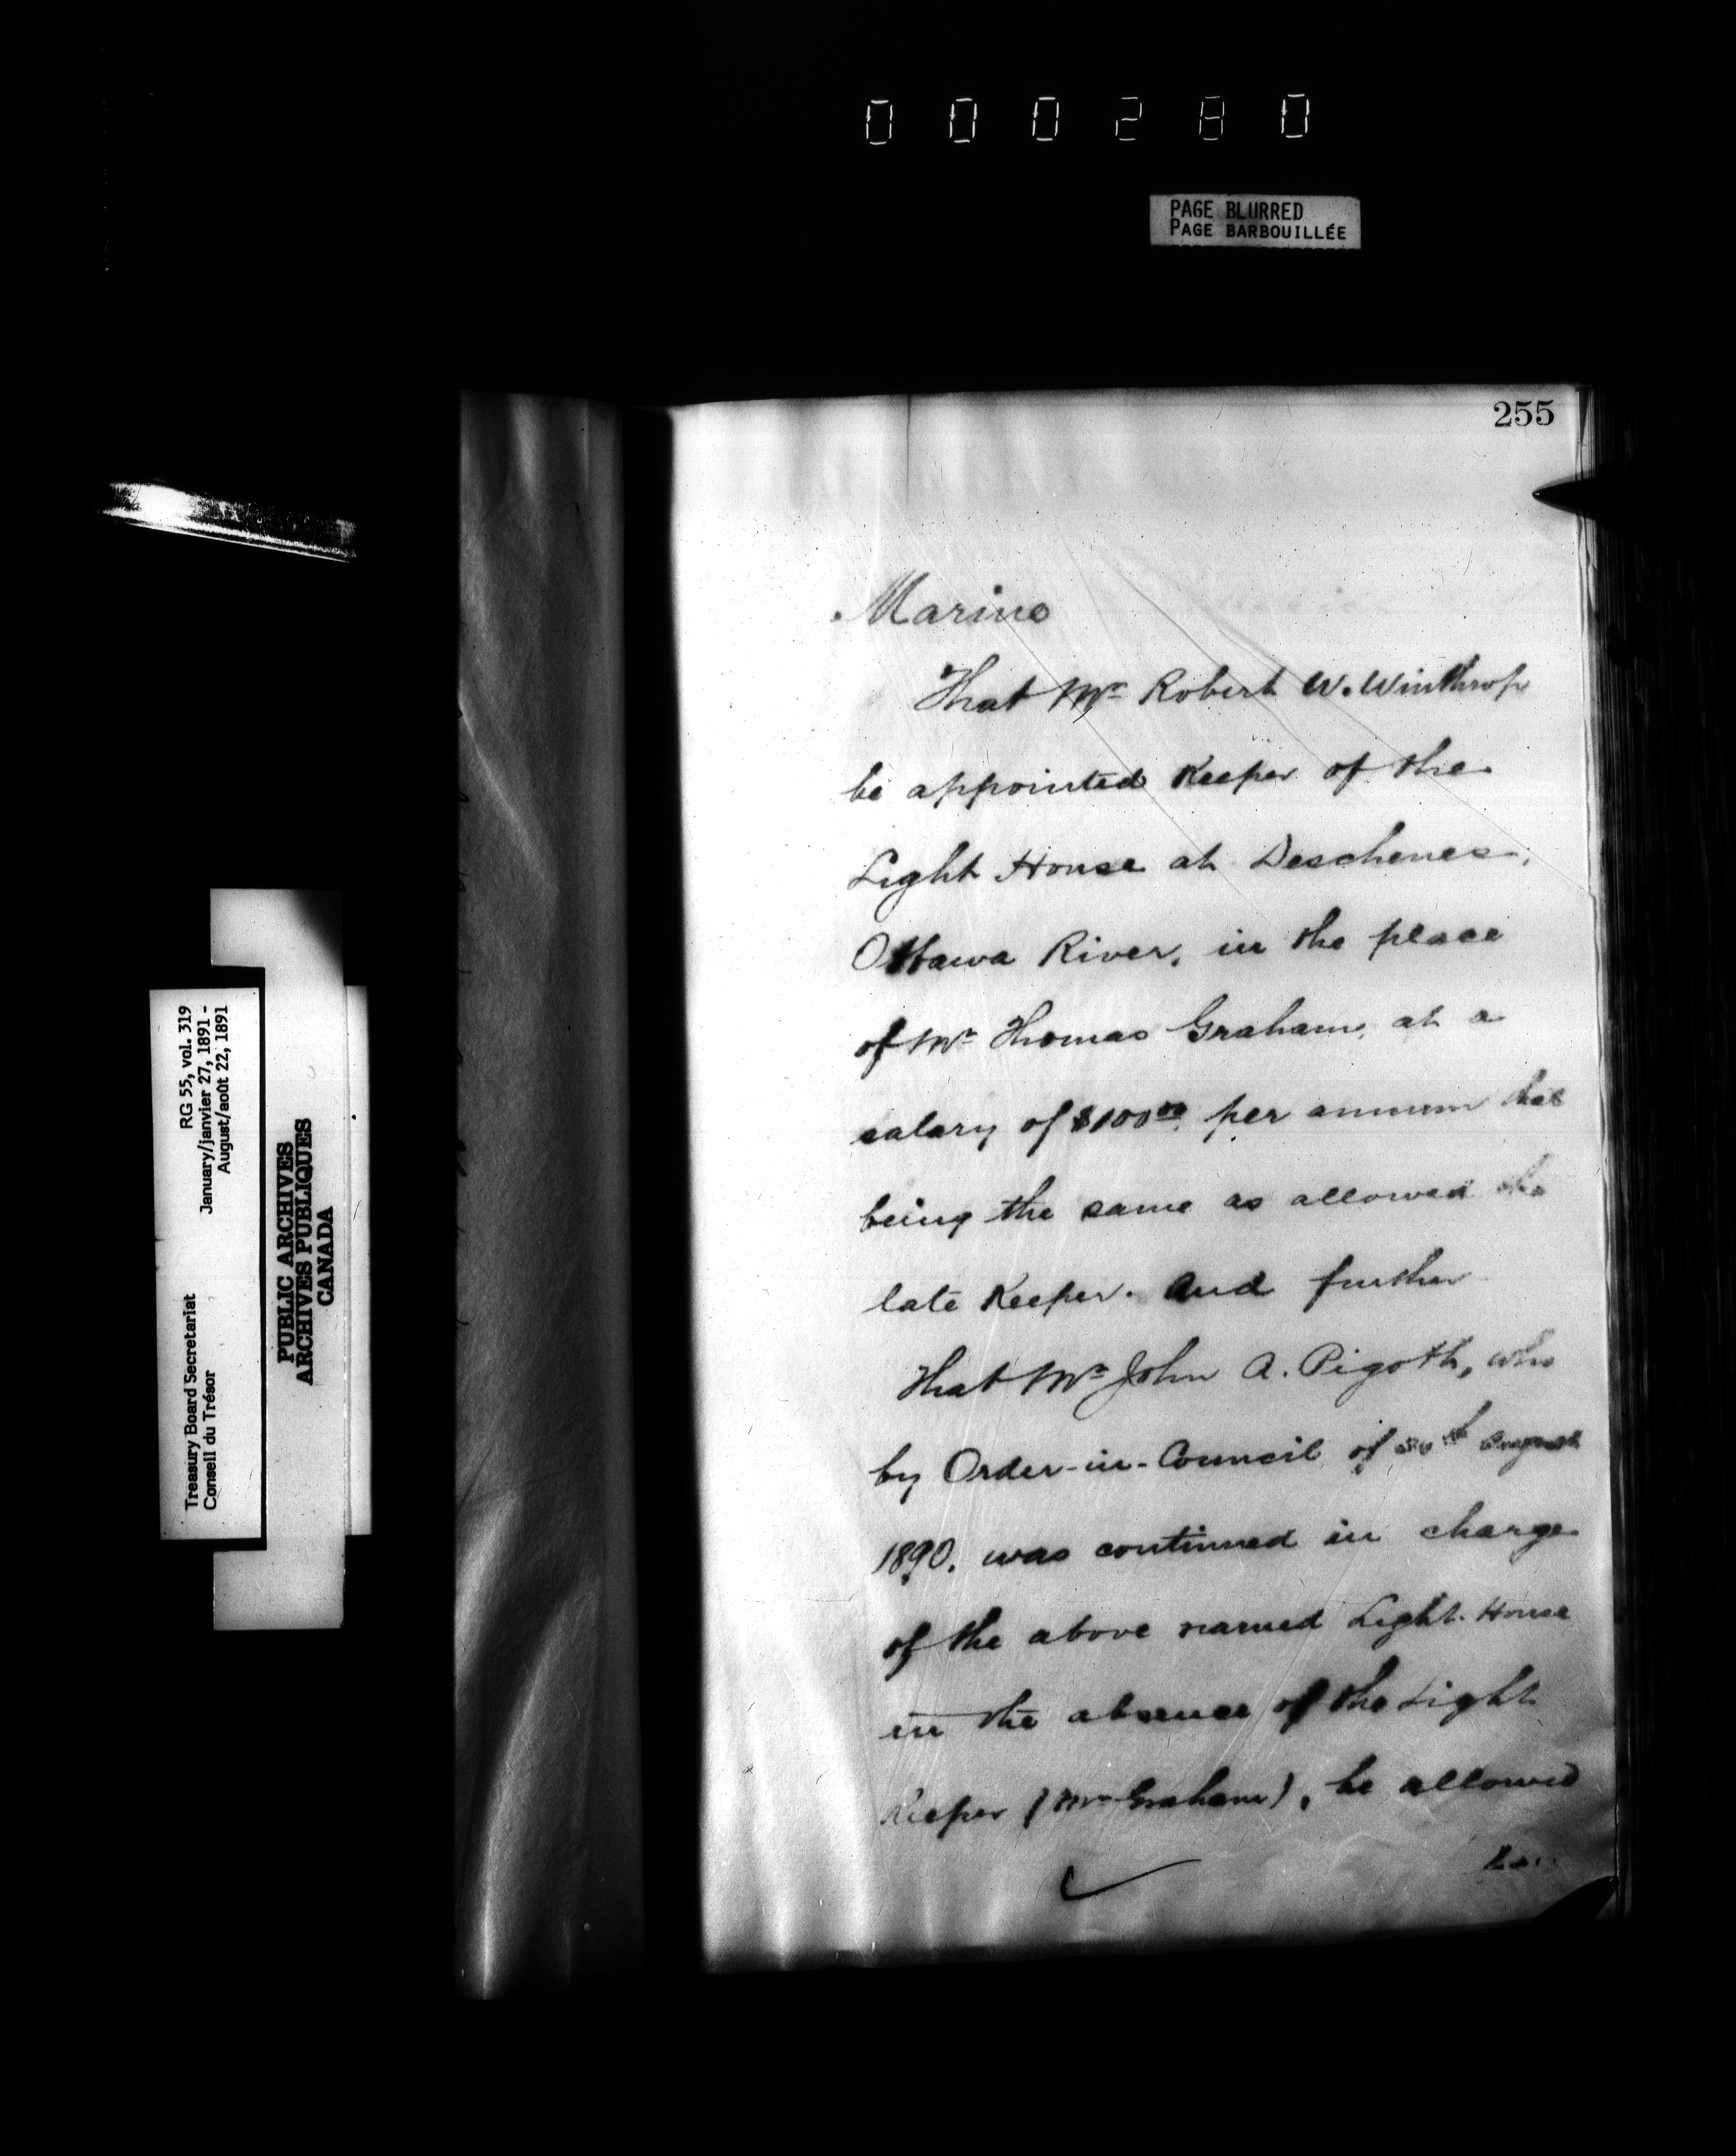 000280
PAGE BLURRED
PAGE BARBOUILLÉE
255
Marine
That Mr Robert W. Winthrop
be appointed Keeper of the
Light House at Deschenes,
Ottawa River, in the place
of Mr Thomas Graham, at a
salary of $100.00 per annum that
being the same as allowed the
late Keeper. And further
That Mr John A. Pigott, who
by Order-in-Council of August
1890, was continued in charge
of the above named Light House
in the absence of the Light
Keeper (Mr Graham), be allowed
RG 55, vol. 319
January/janvier 27, 1891 -
August/août 22, 1891
Treasury Board Secretariat
Conseil du Trésor
PUBLIC ARCHIVES
ARCHIVES PUBLIQUES
CANADA